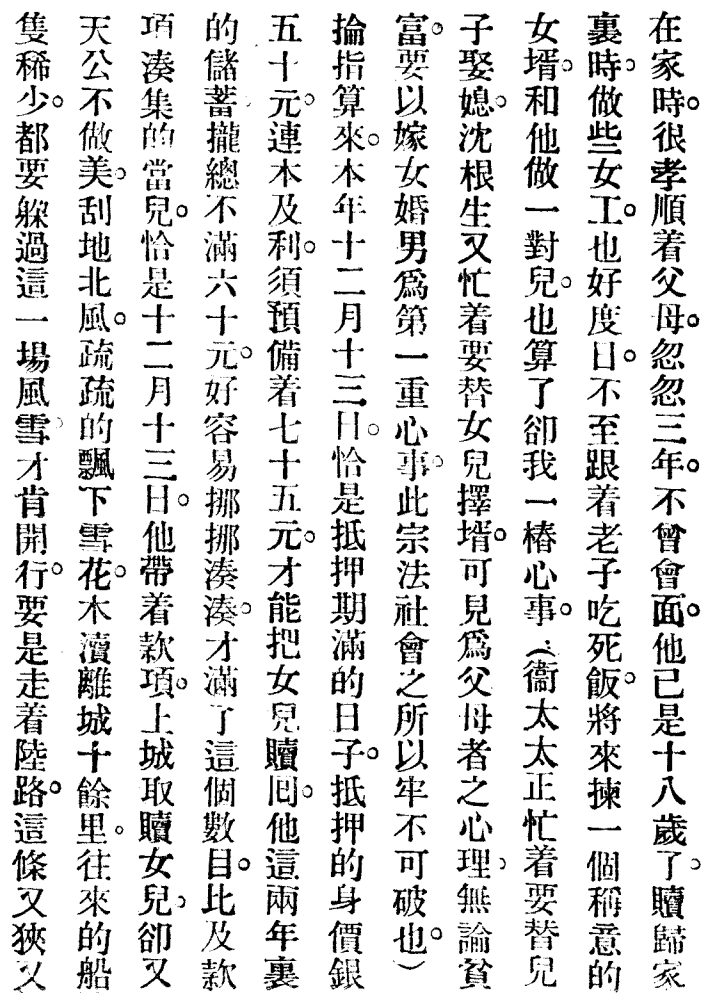 在家時。很孝順着父母。忽忽三年。不曾會面。他已是十八歲了。贖歸家
裏時。做些女工。也好度日。不至跟着老子吃死飯。將來揀一個稱意的
女壻。和他做一對兒。也算了卻我一樁心事。（衞太太正忙着要替兒
子娶媳。沈根生又忙着要替女兒擇壻。可見爲父母者之心理。無論貧
富。要以嫁女婚男爲第一重心事。此宗法社會之所以牢不可破也。）
掄指算來。本年十二月十三日。恰是抵押期滿的日子。抵押的身價銀
五十元。連本及利。須預備着七十五元。才能把女兒贖囘。他這兩年裏
的儲蓄。攏總不滿六十元。好容易挪挪湊湊。才滿了這個數目。比及款
項湊集的當兒。恰是十二月十三日。他帶着款項。上城取贖女兒。卻又
天公不做美。刮地北風。疏疏的飄下雪花。木瀆離城十餘里。往來的船
隻稀少。都要躲過這一場風雪。才肯開行。要是走着陸路。這條又狹又